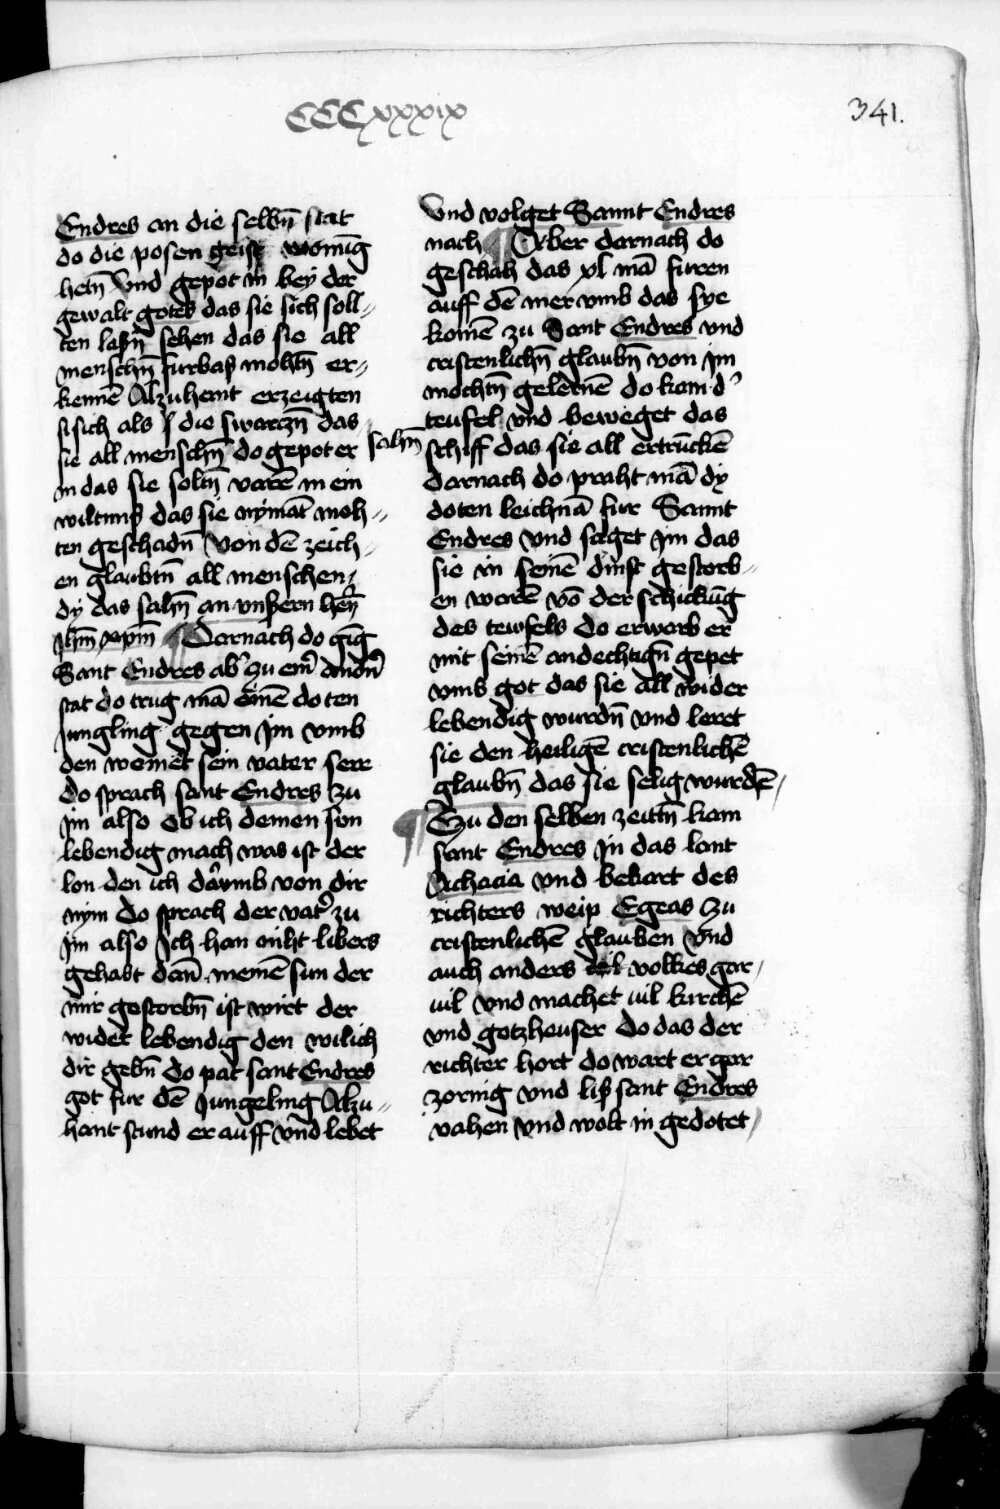 CCCxxxix
341.
Endres an die selbn̄ stat
do die posen geist wonūg
hetn̄ Vnd gepot in bey der
gewalt gotes das sie sich soll„
ten laßn̄ sehen das sie all
menschn̄ furbaß mohtn̄ er„
kennē Alzuhent erzeigten
si sich als die swarczn̄ das
sie all menschn̄ sahn̄ do gepot er
in das sie soltn̄ varē in ein
wiltnuß das sie nymāt moh„
ten geschadn̄ Von dē zeich„
en glaubtn̄ all menschen
dy das sahn̄ an vnßern hērn̄
Jhm̄ xpm̄ ¶ Darnach do gīg
Sant Endres ab' zu em̄ andn̄
stat do trug mā einē doten
Jungling gegen Jm vmb
den weinet sein vater sere
do sprach sant Endres zu
jm also Ob ich deinen sun
lebendig mach was ist der
lon den ich darumb von dir
nym Do sprach der vat' zu
jm also Ich han niht libers
gehabt dan̄ meinē sun der
mir gestorbn̄ ist wirt der
wider lebendig den wil ich
dir gebn̄ Do pat sant Endres
got fur dē Jungeling Alzu„
hant stund er auff vnd lebet
Vnd volget Sannt Endres
nach ¶ Aber darnach do
geschah das xl mā furen
auff dē mer vmb das sye
komē zu Sant Endres vnd
cristenlichn̄ glaubn̄ von Jm
mochtn̄ gelernē do kam d'
teufel vnd beweget das
schiff das sie all ertrūckē
Darnach do praht mā dy
doten leichnā fur Sannt
Endres Vnd saget Jm das
sie in seinē dinst gestorb„
en warē vō der schickūg
des tewfels Do erwarb er
mit seinē andechtign̄ gepet
vmb got das sie all wider
lebendig wurdn̄ vnd leret
sie den heiligē cristenlichē
glaubn̄ das sie selig wurdē
¶ Zu den selben zeitn̄ kam
sant Endres Jn das lant
Achacia vnd bekart des
richters weip Egeas zu
cristenlichē glauben Vnd
auch anders volkes gar
vil vnd machet vil kirchē
vnd gotzheuser Do das der
richter hort do wart er gar
zornig vnd liß sant Endres
vahen Vnd wolt in gedotet